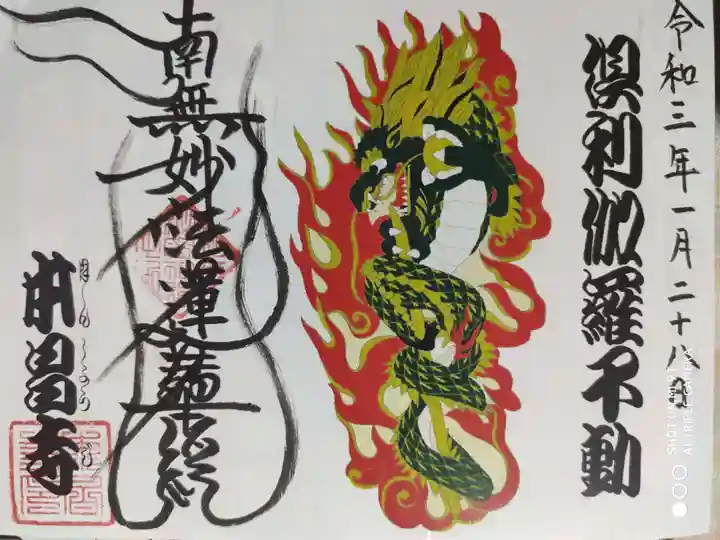 令和三年一月二十八日
倶利伽羅不動
南無妙法蓮華経
本昌寺
ほんしょうじ
SHOT ON
AI TRIPLE CAMERA